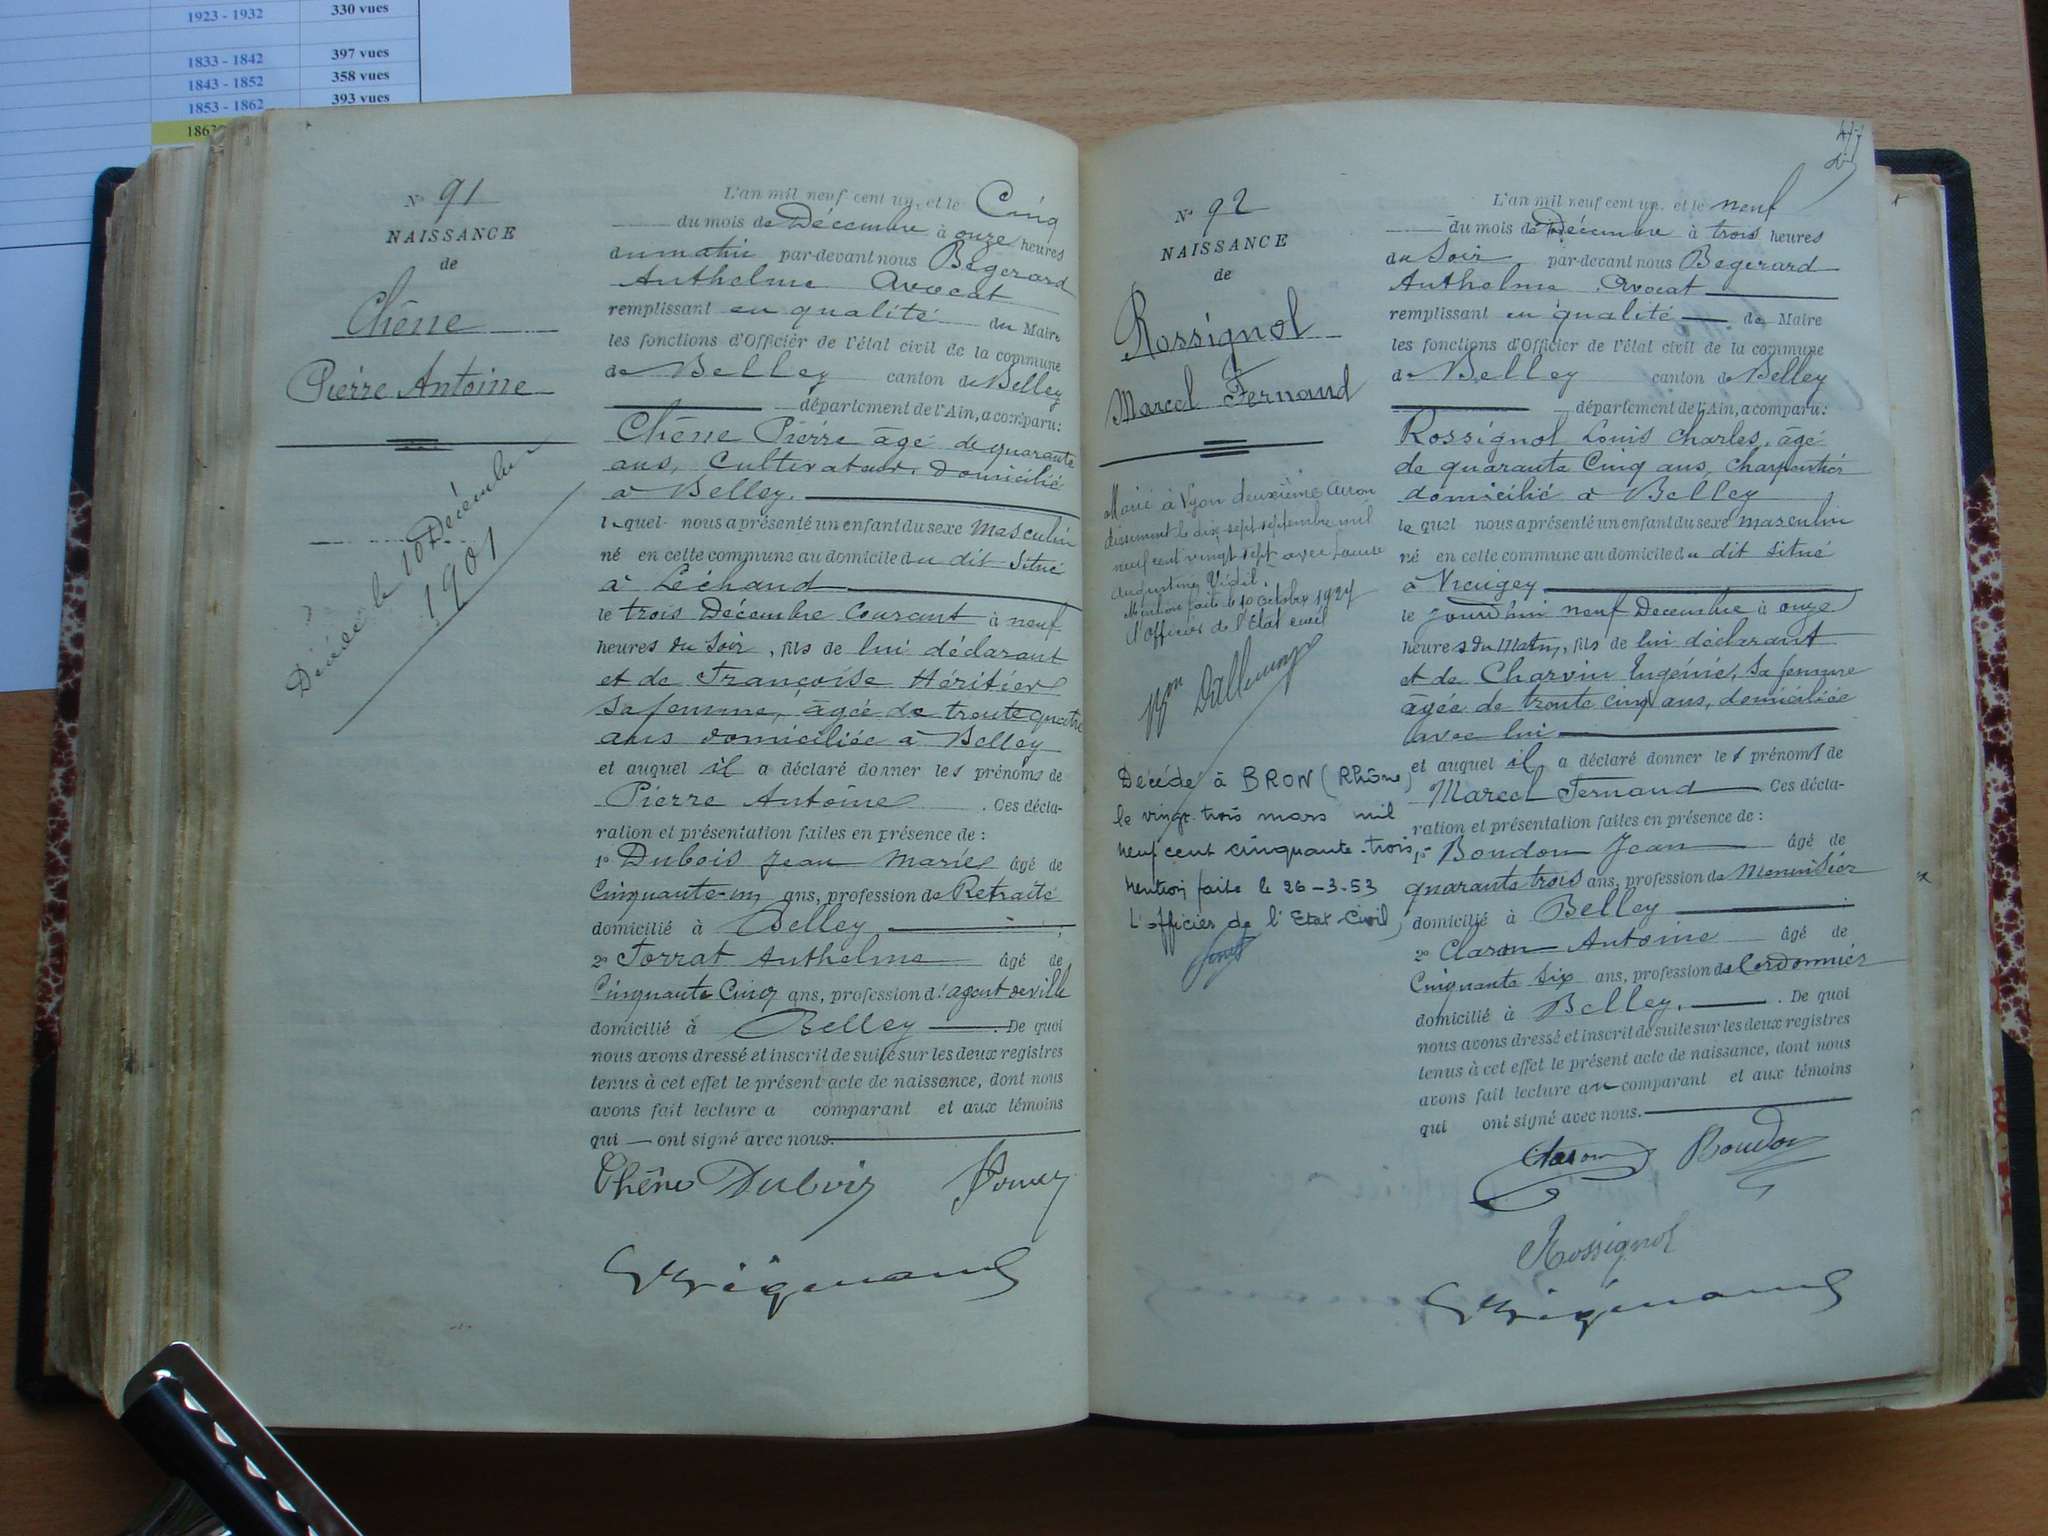 1923 - 1932 330 vues
1833 - 1842 397 vues
1843 - 1852 358 vues
1853 - 1862 393 vues
1863
N° 91
NAISSANCE
de
Chêne
Pierre Antoine
Décédé le 10 Décembre
1901
L'an mil neuf cent un, et le Cinq
du mois de Décembre à onze heures
du matin par-devant nous Bégerard
Anthelme Avocat
remplissant en qualité du Maire
les fonctions d'Officier de l'état civil de la commune
de Belley canton de Belley
département de l'Ain, a comparu:
Chêne Pierre âgé de quarante
ans, Cultivateur, domicilié
à Belley.
lequel nous a présenté un enfant du sexe masculin
né en cette commune au domicile du dit situé
à Léchaud
le trois Décembre Courant à neuf
heures du soir, fils de lui déclarant
et de Françoise Héritier
sa femme, âgée de trente quatre
ans domiciliée à Belley
et auquel il a déclaré donner les prénoms de
Pierre Antoine. Ces décla-
ration et présentation faites en présence de :
1° Dubois Jean Marie âgé de
Cinquante-un ans, profession de Retraité
domicilié à Belley,
2° Torrat Anthelme âgé de
Cinquante Cinq ans, profession d'agent de ville
domicilié à Belley De quoi
nous avons dressé et inscrit de suite sur les deux registres
tenus à cet effet le présent acte de naissance, dont nous
avons fait lecture a comparant et aux témoins
qui ont signé avec nous.
Chêne Dubois
N° 92
NAISSANCE
de
Rossignol
Marcel Fernand
Marié à Lyon deuxième arron
dissement le dix sept septembre mil
neuf cent vingt sept avec Louise
Augustine Vidil.
Mention faite le 10 octobre 1927
L'officier de l'Etat civil
Décédé à BRON (Rhône)
le vingt-trois mars mil
neuf cent cinquante-trois
Mention faite le 26-3-53
L'officier de l'Etat-Civil,
L'an mil neuf cent un, et le neuf
du mois de Décembre à trois heures
du soir par-devant nous Bégerard
Anthelme Avocat
remplissant en qualité de Maire
les fonctions d'Officier de l'état civil de la commune
de Belley canton de Belley
département de l'Ain, a comparu:
Rossignol Louis Charles, âgé
de quarante Cinq ans, charpentier
domicilié à Belley
lequel nous a présenté un enfant du sexe masculin
né en cette commune au domicile du dit situé
à
le jourd'hui neuf Decembre à onze
heures du matin, fils de lui déclarant
et de Charvin Eugénie, sa femme
âgée de trente cinq ans, domiciliée
avec lui
et auquel il a déclaré donner les prénoms de
Marcel Fernand Ces décla-
ration et présentation faites en présence de :
1° Boudon Jean âgé de
quarante trois ans, profession de Menuisier
domicilié à Belley
2° Claron Antoine âgé de
Cinquante six ans, profession de Cordonnier
domicilié à Belley. De quoi
nous avons dressé et inscrit de suite sur les deux registres
tenus à cet effet le présent acte de naissance, dont nous
avons fait lecture au comparant et aux témoins
qui ont signé avec nous.
Claron Boudon
Rossignol